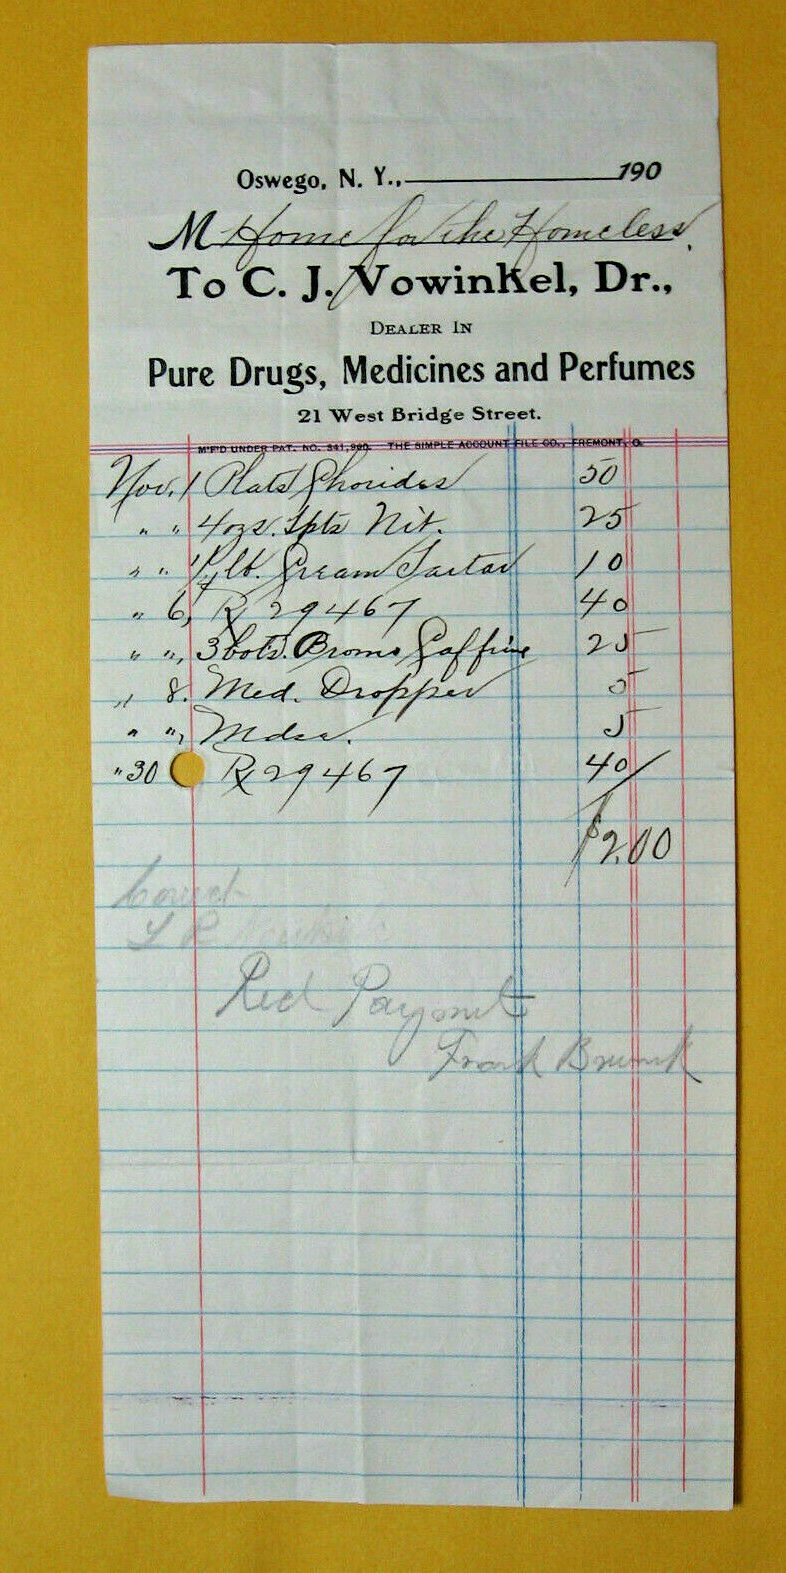 Oswego, N. Y., 190
M Home for the Homeless
To C. J. Vowinkel, Dr.,
DEALER IN
Pure Drugs, Medicines and Perfumes
21 West Bridge Street.
M'F'D UNDER PAT. NO. 541,920. THE SIMPLE ACCOUNT FILE CO., FREMONT, O.
Nov. 1 Plats Chorides 50
" " 4 ozs. Spts Nit. 25
" " 1/4 lb. Cream Tartar 10
" 6, Rx 29467 40
" ", 3 bots. Bromo Caffine 25
" 8. Med. Dropper 5
" ", Mdse. 5
" 30 Rx 29467 40
$2.00
Correct
Recd Payment
Frank